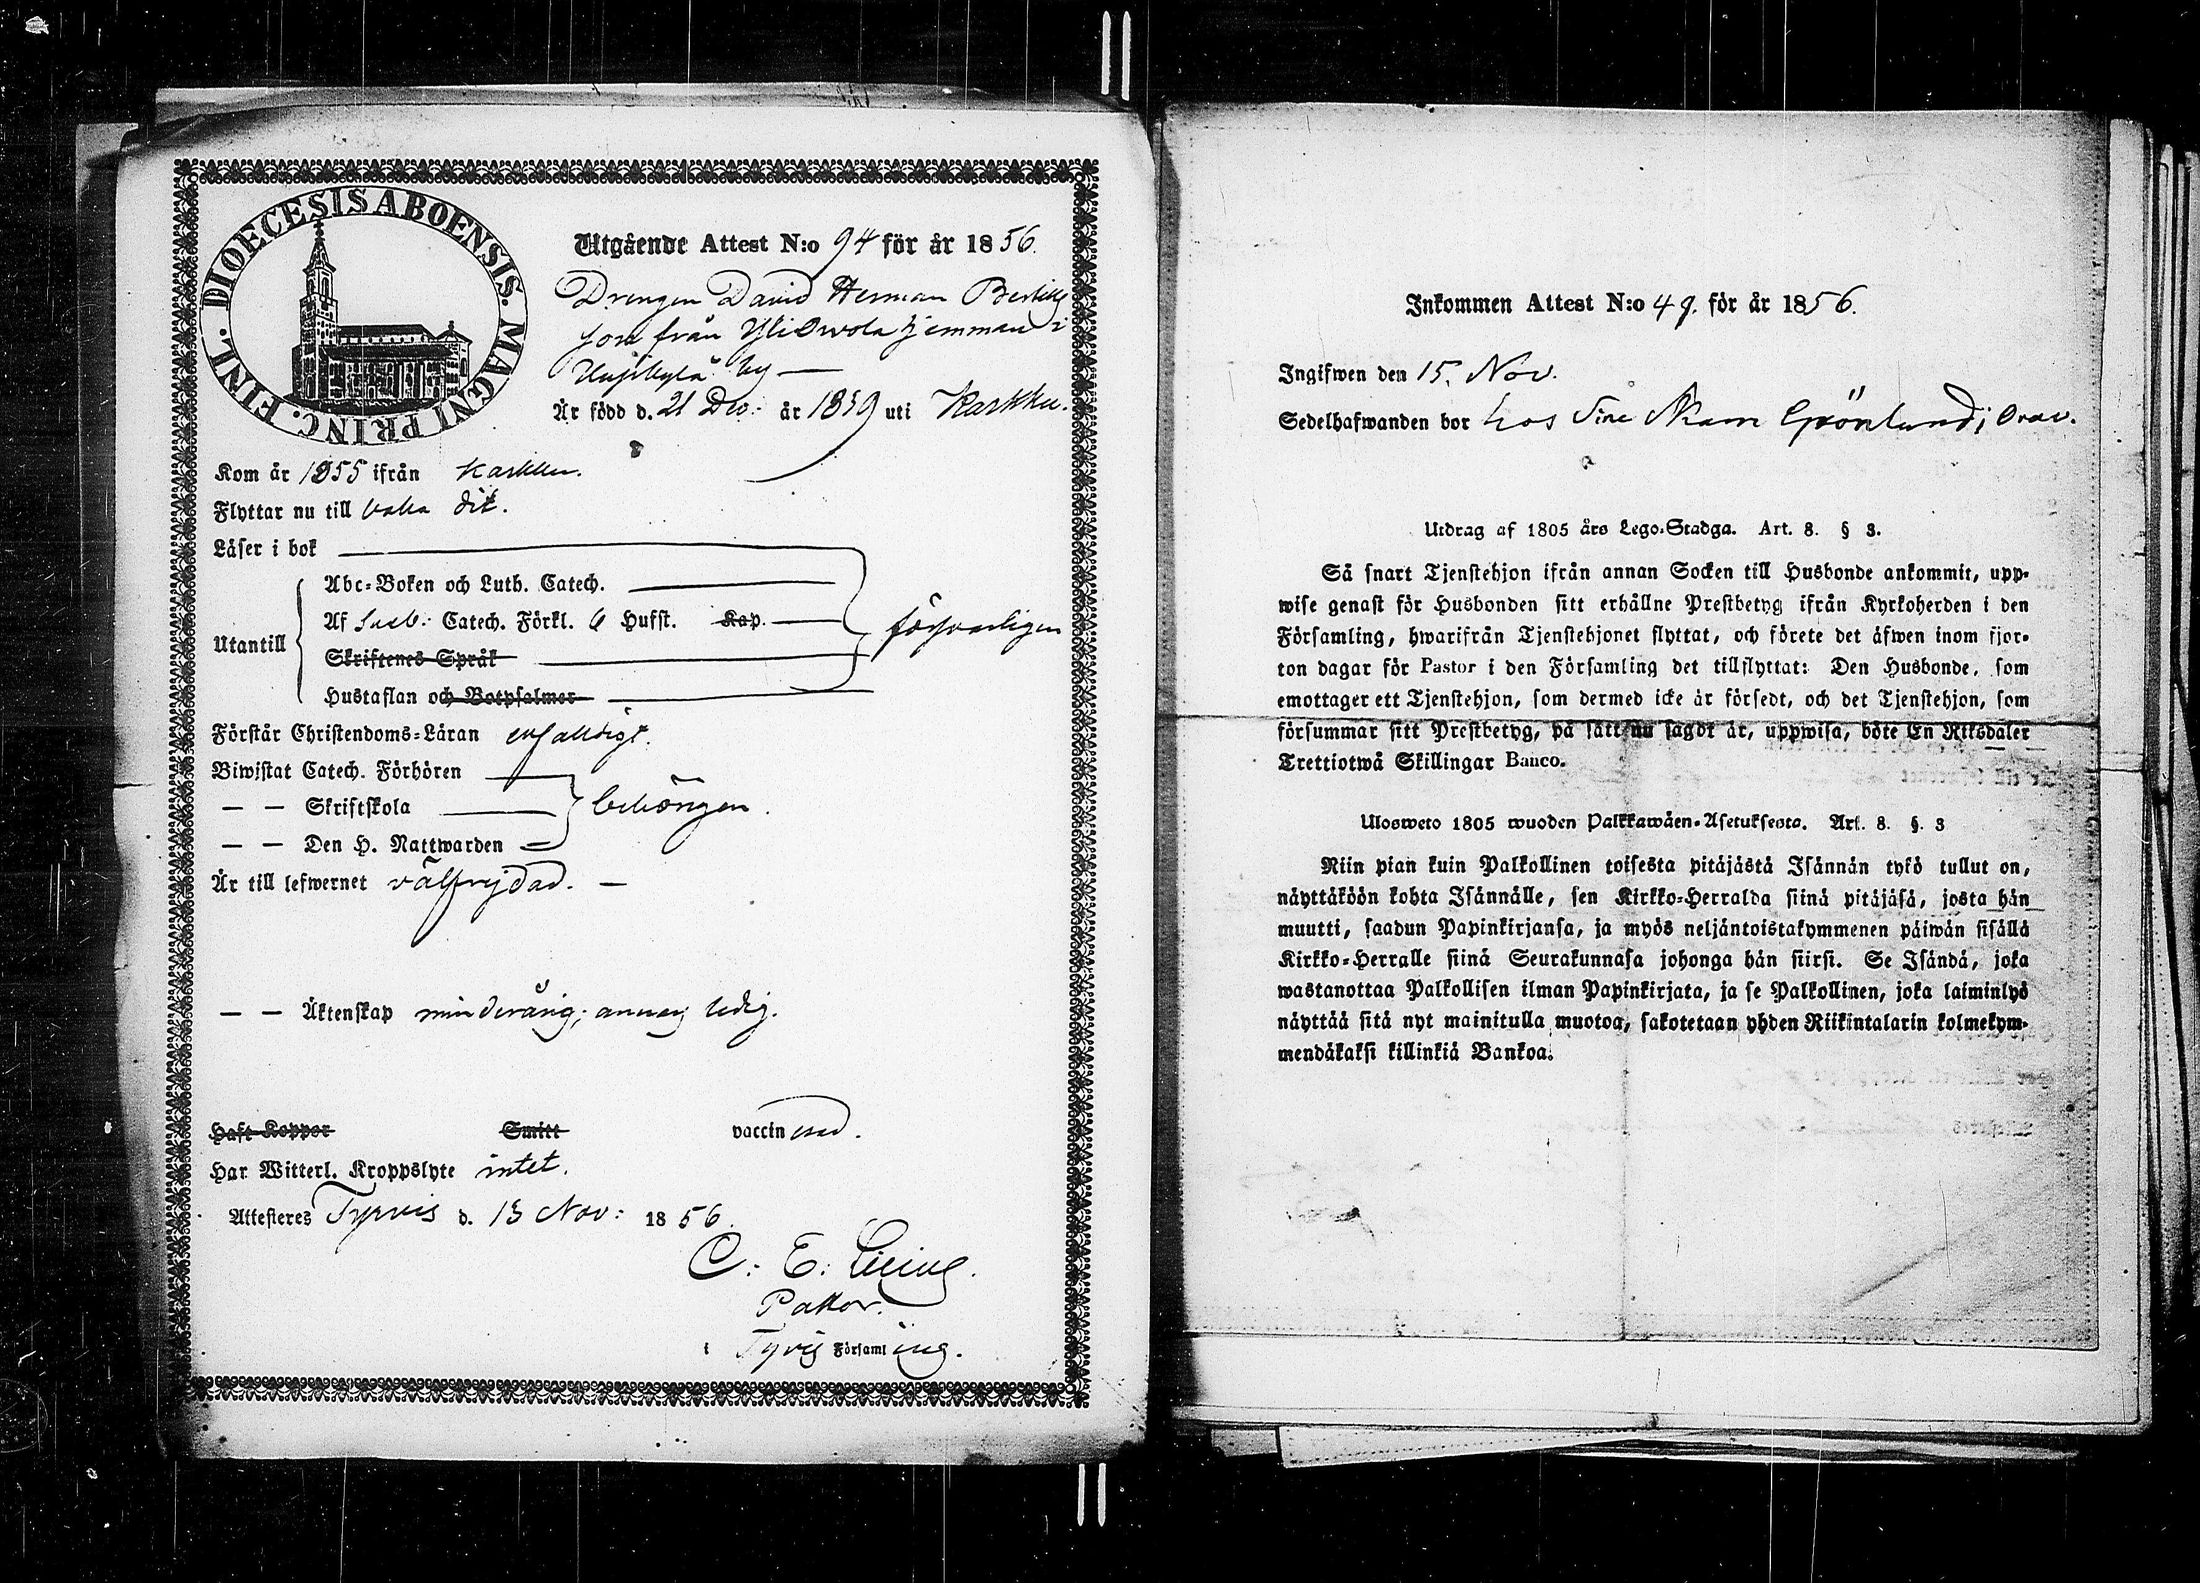 DIOECESIS ABOENSIS. MAGNI PRINC. FINL.
Utgående Attest N:o 94 för år 1856.
Drengen David Herman Bertils
son från Yli hemman i
by —
Är född d. 21 Dec: år 1839 uti Karkku.
Kom år 1855 ifrån Karkku.
Flyttar nu till baka dit.
Läser i bok
Abc-Boken och Luth. Catech.
Utantill
Af Catech. Förkl. 6 Hufst. Kap.
försvarligen
Skriftenes Språk
Hustaflan och Botpsalmer
Förstår Christendoms-Läran enfaldigt.
Biwistat Catech. Förhören
— — Skriftskola
behörigen.
— — Den H. Nattwarden
Är till lefwernet välfrejdad. —
— — Äktenskap minderårig; annars ledig.
Haft Koppor Smitt vaccinerad.
Har Witterl. Kroppslyte intet.
Attesteres Tyrvis d. 13 Nov: 1856.
C: E:
Pastor.
i Tyrvis Församling.
Inkommen Attest N:o 49. för år 1856.
Ingifwen den 15. Nov.
Sedelhafwanden bor hos Grönlund i
Utdrag af 1805 års Lego-Stadga. Art. 8. § 3.
Så snart Tjenstehjon ifrån annan Socken till Husbonde ankommit, upp-
wise genast för Husbonden sitt erhållne Prestbetyg ifrån Kyrkoherden i den
Församling, hwarifrån Tjenstehjonet flyttat, och förete det äfwen inom fjor-
ton dagar för Pastor i den Församling det tillflyttat: Den Husbonde, som
emottager ett Tjenstehjon, som dermed icke är försedt, och det Tjenstehjon, som
försummar sitt Prestbetyg, på sätt nu sagdt är, uppwisa, böte En Riksdaler
Trettiotwå Skillingar Banco.
Ulosweto 1805 wuoden Palkkawäen-Asetuksesta. Art. 8. §. 3
Niin pian kuin Palkollinen toisesta pitäjästä Isännän tykö tullut on,
näyttäköön kohta Isännälle, sen Kirkko-Herralda siinä pitäjäsä, josta hän
muutti, saadun Papinkirjansa, ja myös neljäntoistakymmenen päiwän sisällä
Kirkko-Herralle siinä Seurakunnasa johonga hän siirsi. Se Isändä, joka
wastanottaa Palkollisen ilman Papinkirjata, ja se Palkollinen, joka laiminlyö
näyttää sitä nyt mainitulla muotoa, sakotetaan yhden Riikintalarin kolmekym-
mendäkaksi killinkiä Bankoa.